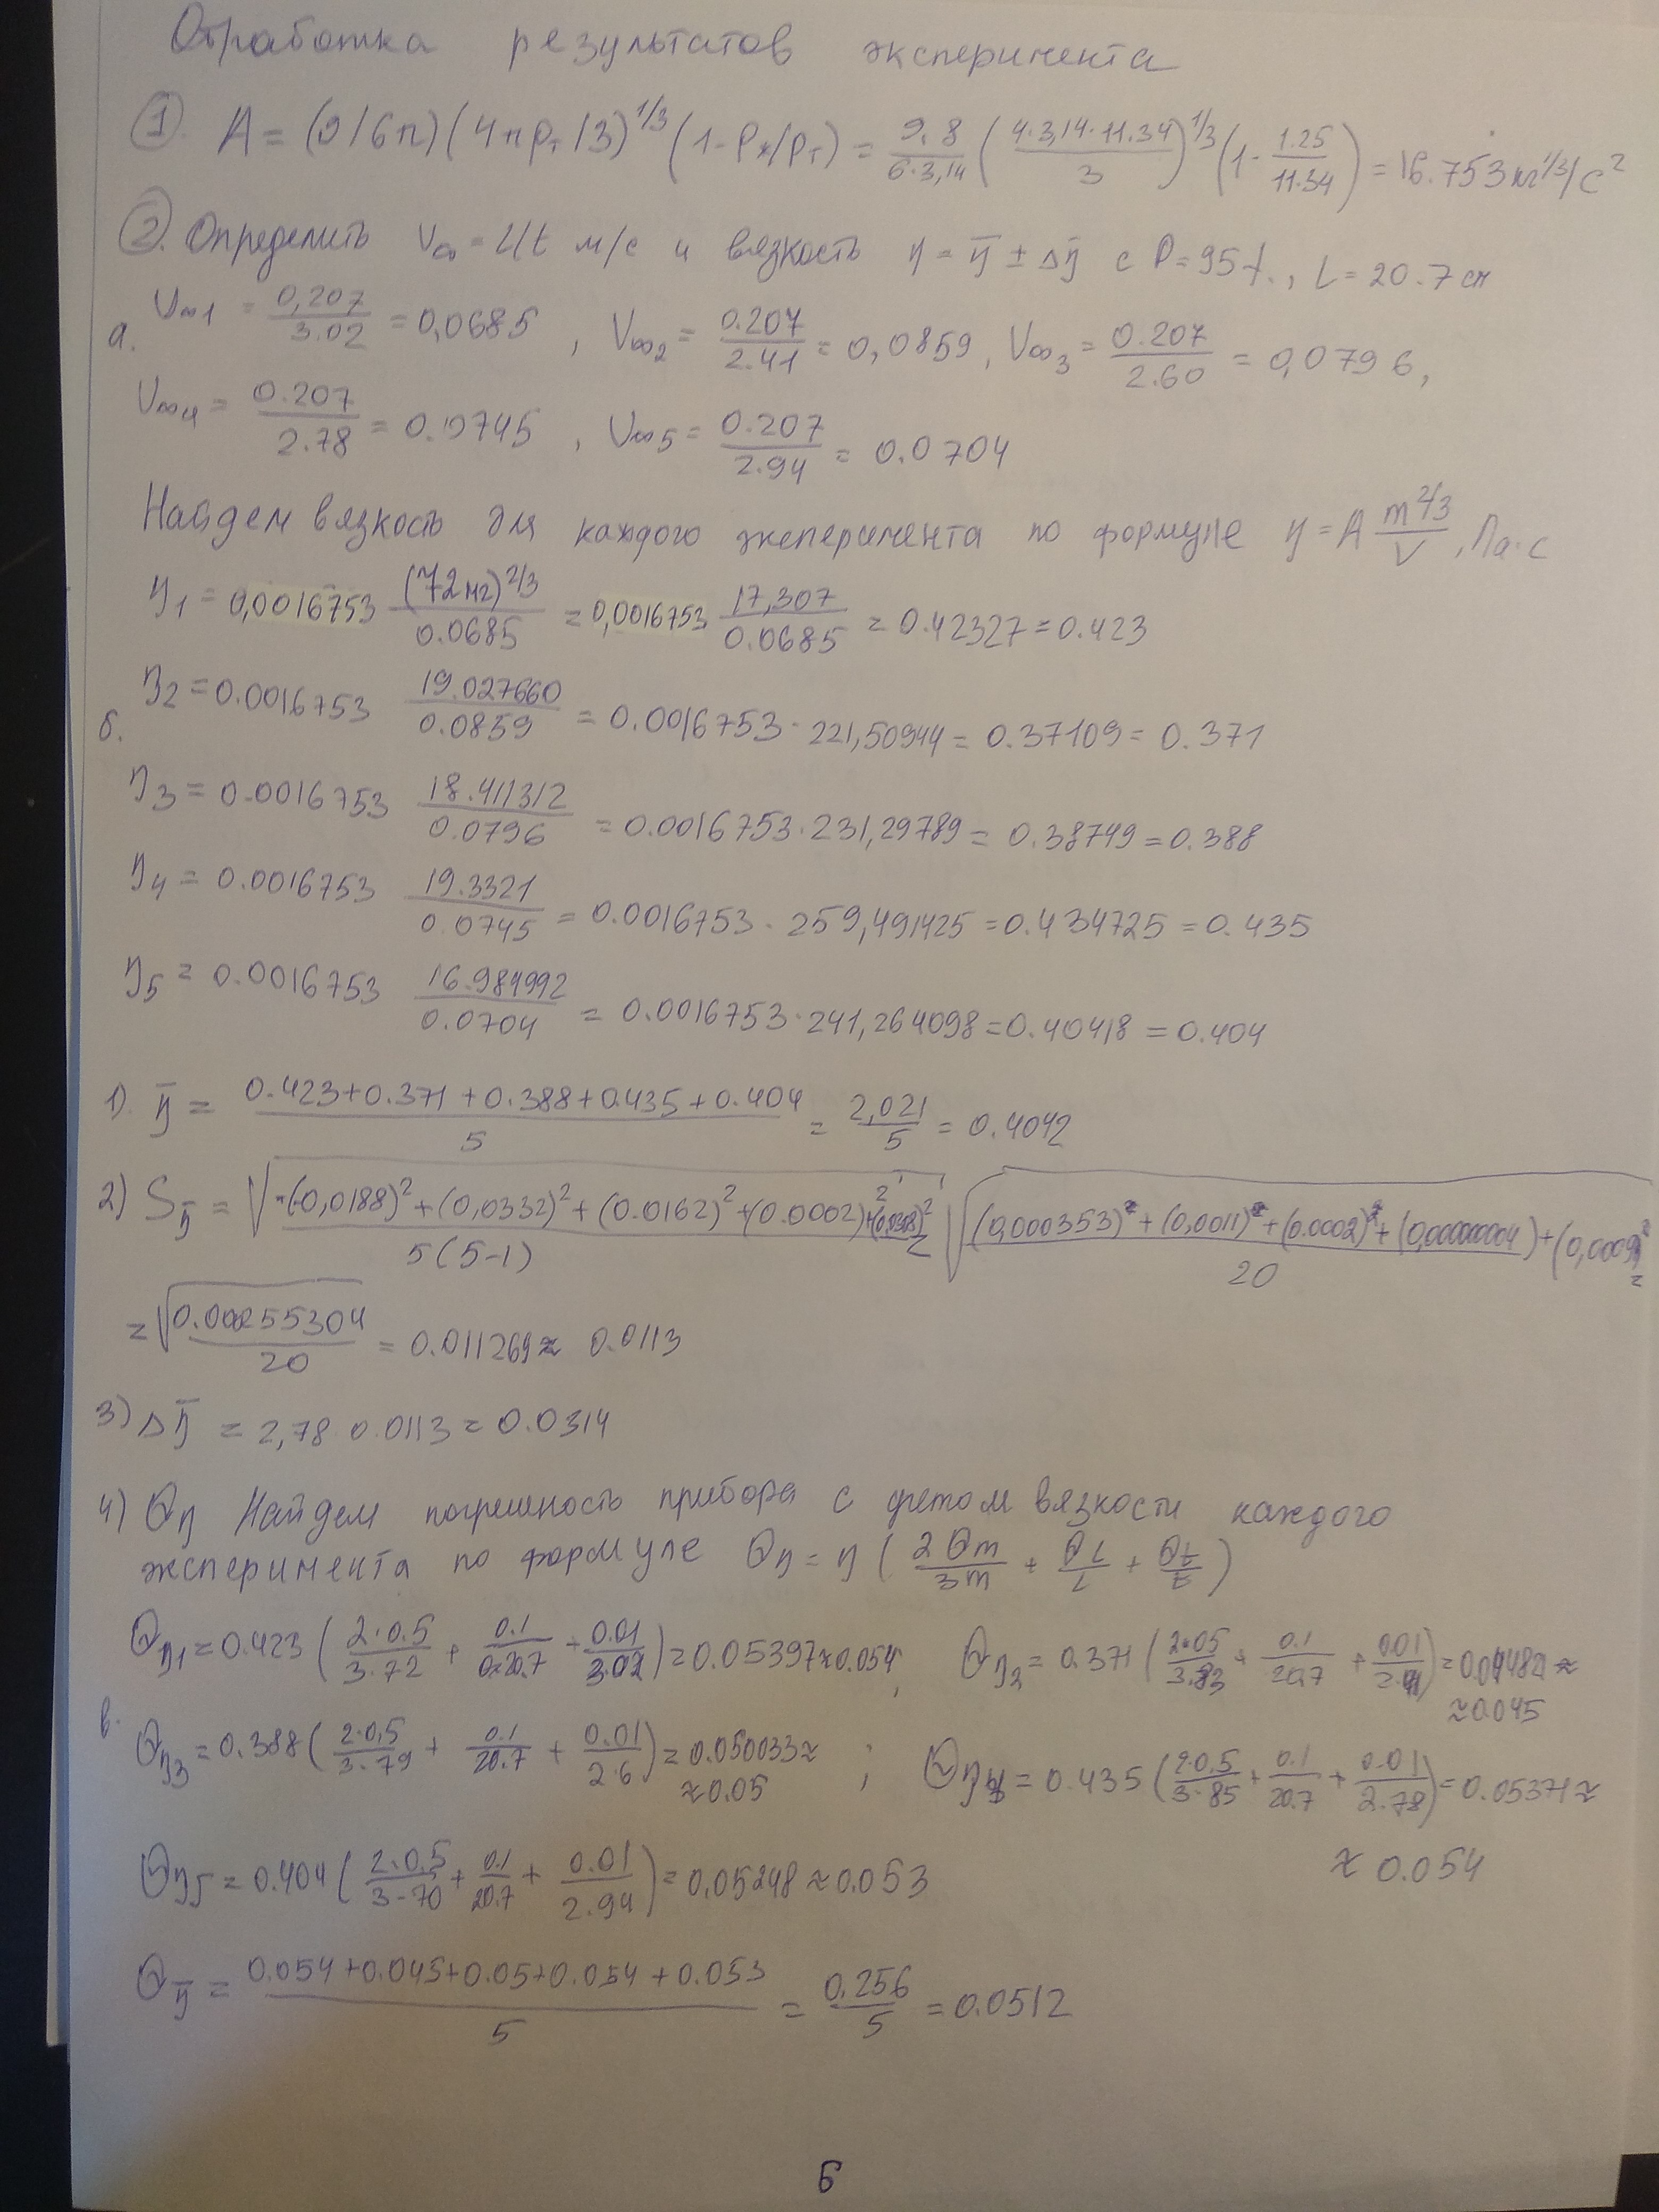 Обработка результатов эксперимента
①. A = (g/6π)(4πρт/3)^1/3 (1-ρж/ρт) = 9.8/6·3,14 (4·3,14·11.34/3)^1/3 (1-1.25/11.34) = 16.753 кг^1/3/с²
②. Определить V∞ = L/t м/с и вязкость η = η̄ ± Δη̄ с P=95%., L=20.7 см
а. V∞1 = 0,207/3.02 = 0,0685, V∞2 = 0.207/2.41 = 0,0859, V∞3 = 0.207/2.60 = 0,0796,
V∞4 = 0.207/2.78 = 0.0745, V∞5 = 0.207/2.94 = 0.0704
Найдем вязкость для каждого эксперимента по формуле η = A m^2/3/V, Па·с
η1 = 0,0016753 (72мг)^2/3/0.0685 = 0,0016753 17,307/0.0685 = 0.42327 = 0.423
б. η2 = 0.0016753 19.027660/0.0859 = 0.0016753 · 221,50944 = 0.37109 = 0.371
η3 = 0.0016753 18.411312/0.0796 = 0.0016753 · 231,29789 = 0.38749 = 0.388
η4 = 0.0016753 19.3321/0.0745 = 0.0016753 · 259,491425 = 0.434725 = 0.435
η5 = 0.0016753 16.984992/0.0704 = 0.0016753 · 241,264098 = 0.40418 = 0.404
1). η̄ = 0.423+0.371+0.388+0.435+0.404/5 = 2,021/5 = 0.4042
2) Sη̄ = √(-0,0188)²+(0,0332)²+(0.0162)²+(0.0002)²+(0.0308)²/5(5-1) = √(0,000353)²+(0,0011)²+(0.0002)²+(0,00000004)+(0,0009)²/20 =
= √0.00255304/20 = 0.011269 ≈ 0.0113
3) Δη̄ = 2,78 · 0.0113 = 0.0314
4) Θη Найдем погрешность прибора с учетом вязкости каждого
эксперимента по формуле Θη = η (2Θm/3m + ΘL/L + Θt/t)
Θη1 = 0.423 (2·0.5/3·72 + 0.1/20.7 + 0.01/3.02) = 0.05397 ≈ 0.054, Θη2 = 0.371 (2·05/3·83 + 0.1/20,7 + 0.01/2.41) = 0.04482 ≈
≈ 0.045
в. Θη3 = 0.388 (2·0,5/3·79 + 0.1/20.7 + 0.01/2.6) = 0.050033 ≈ ; Θη4 = 0.435 (2·0.5/3·85 + 0.1/20.7 + 0.01/2.78) = 0.05371 ≈
≈ 0.05
≈ 0.054
Θη5 = 0.404 (2·0.5/3·70 + 0.1/20.7 + 0.01/2.94) = 0,05248 ≈ 0.053
Θη̄ = 0.054+0.045+0.05+0.054+0.053/5 = 0.256/5 = 0.0512
6